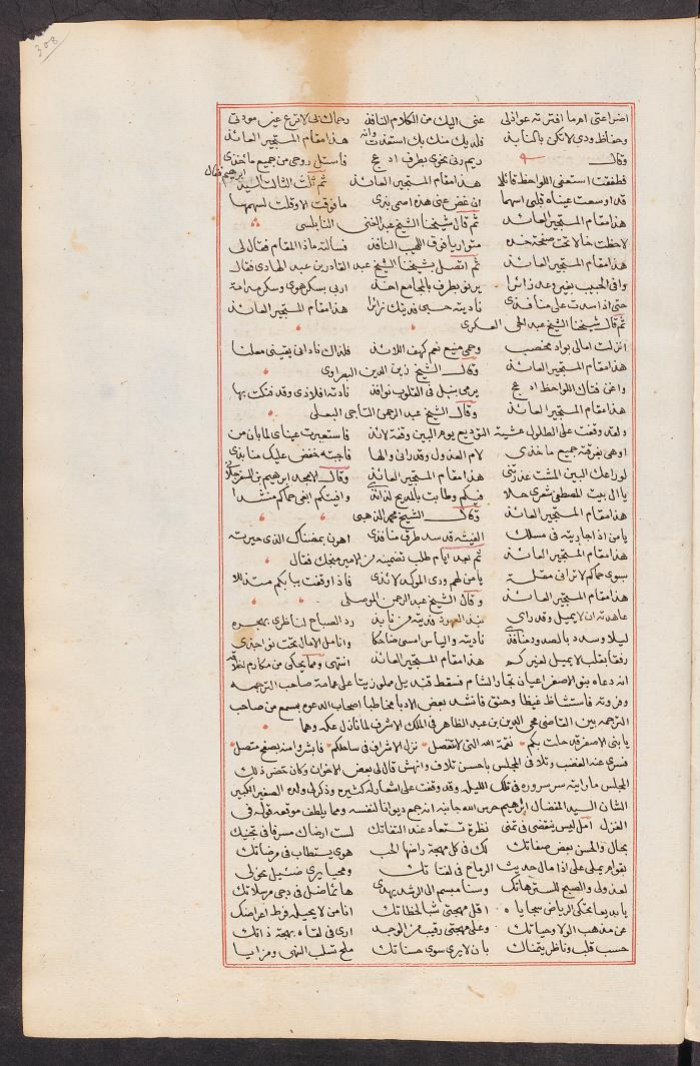 308
اضراعتي امرما افترته عواذلي عني اليك من الكلام النافذ رحماك بي لا ترع غير مودتي
وحفاظ ودي لا تكن بالنابذ فلديك منك بك استعذت وانه هذا مقام المستجير العائذ
وقال ريم رنى نحوي بطرف ادعج فاستل روحي من جميع مآخذي
ابرهيم فقال
فطفقت استعفي اللواحظ قائلا هذا مقام المستجير العائذ ثم ثلث الثالث السيد
قد اوسعت عيناه قلبي اسهما ان غض عني هذه اصمى بذي ما فوقت الا وقلت لسهمها
هذا مقام المستجير العائذ ثم قال شيخنا الشيخ عبد الغني النابلسي
لاحظت خالا تحت صفحة خده متواريا فوق اللهيب النافذ فسألته ماذا المقام فقال لي
هذا مقام المستجير العائذ ثم اتصل بشيخنا الشيخ عبد القادر بن عبد الهادي فقال
وافى الحبيب بغير وعد زائرا يرنو بطرف بالمجامع آخذ اربى بسكر هوى وسكر مدامة
حتى اذا سدت علي منافذي ناديته حسبي فديتك زائرا هذا مقام المستجير العائذ
ثم قال شيخنا الشيخ عبد الحي العسكري
انزلت امالي بواد مخصب وحمى منيع نعم كهف اللائذ فلذاك ناداني يقيني معلنا
هذا مقام المستجير العائذ وقال الشيخ زين الدين البصراوي
واغن فتاك اللواحظ ادعج يرمي بنبل في القلوب نوافذ نادته افلاذي وقد فتكت بها
هذا مقام المستجير العائذ وقال الشيخ عبد الرحمن التاجي البعلي
ولقد وقفت على الطلول عشية التوديع يوم البين وقفة لائذ فاستعبرت عيناي لما بان من
اوهى بفرقته جميع مآخذي لام العذول وقد راني والها فاجبته خفض عليك منابذي
لو راعك البين المشتت عذرتني هذا مقام المستجير العائذ وقال الامجد ابرهيم بن السفرجلاني
يا ال بيت المصطفى شعري حلا فيكم وطابت بالمديح لذائذي وافيتكم ابغي حماكم منشدا
هذا مقام المستجير العائذ وقال الشيخ محمد الذهبي
يا من اذا جاريته في مسلك الفيته قد سد طرق منافذي اهون بمضناك الذي حيرته
هذا مقام المستجير العائذ ثم بعد ايام طلب تضمينه من الامير منجك فقال
بسوى حماكم لا تراني مقلة يا من لهم ودي الموكد لائذي فاذا وقفت ببابكم متذللا
هذا مقام المستجير العائذ وقال الشيخ عبد الرحمن الموصلي
عاهدته ان لا يميل وقد راى نبذ العهود فديته من نابذ رد الصباح لناظري بهجره
ليلا وسدد بالصدود منافذي ناديته والياس امسى ضاحكا وانامل الامال تحت نواجذي
رفقا بقلب لا يميل لغيركم هذا مقام المستجير العائذ انتهى ومما يحكى من مكارم اخلاقه
انه دعاه بنو الاصفر اعيان تجار الشام فسقط قنديل مملو زيتا على عمامة صاحب الترجمه
وفروته فاستشاط غيظا وحنق فانشد بعض الادبا مخاطبا اصحاب الدعوه بسمع من صاحب
الترجمه بيتين القاضي محي الدين بن عبد الظاهر في الملك الاشرف لما نازل عكه وهما
يا بني الاصفر قد حلت بكم نقمة الله التي لا تنفصل نزل الاشراف في ساحلكم فابشروا منه بصفع متصل
فسري عنه الغضب وتلافى المجلس باحسن تلاف وانهش قال لي بعض الاخوان وكان حضر ذلك
المجلس ما رايته سر سروره في تلك الليلة وقد وقفت على اشعار له كثيره وذكر لي ولده الصغير الكبير
الشان السيد المفضال ابرهيم حرس الله جانبه انه جمع ديوانا لنفسه ومما يلطف موقعه قوله في
الغزل امل ليس ينقضي في تمني نظرة تستعاد عند التفاتك لست ارضاك مسرفا في تجنيك
بحال والحسن بعض صفاتك لك في كل مهجة راضها الحب هوى يستطاب في مرضاتك
بقوام يملي على اذا مال حديث الرماح في لفتاتك ومحيا يرى ضئيل بخولي
لعذولي والصبح للستر هاتك وسنا مبسم الى الرشد يهدي هائما ضل في دجى مرسلاتك
يا بديعا تحكي الرياض سجاياه اقل مهجتي شبا لحظاتك انا من لا يحيله فرط اعراضك
عن مذهب الولا وحياتك وعلى مهجتي رقيب من الوجد ارى في لقاءه بهجة ذاتك
حسب قلب وناظر يتمناك بان لا يرى سوى حسناتك ملح تسلب النهى ومزايا